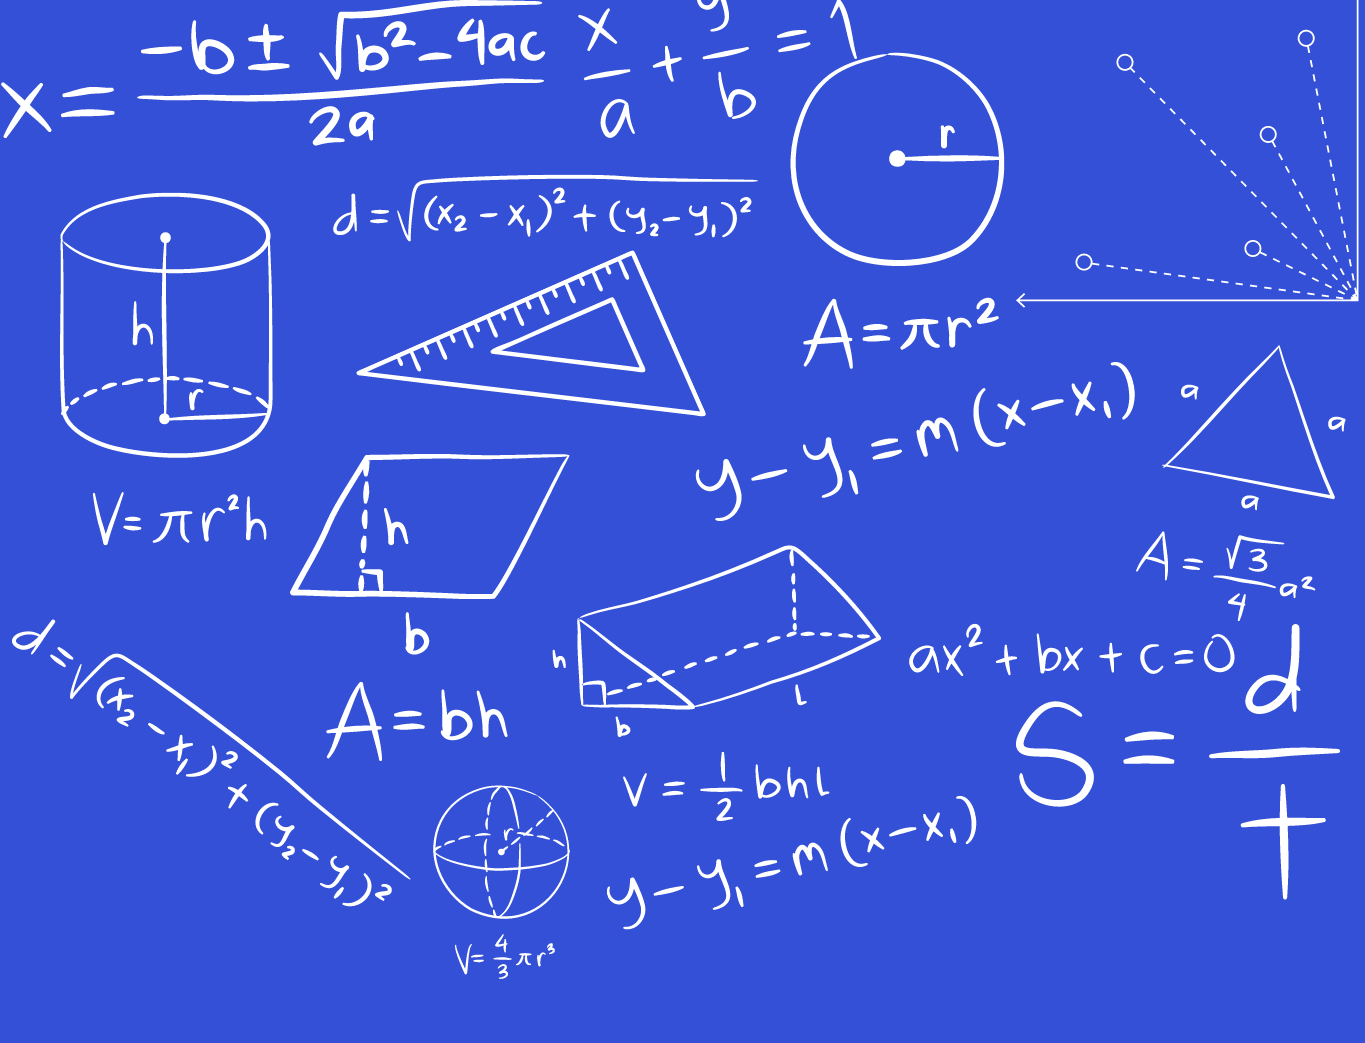 x = (-b ± √(b² - 4ac)) / 2a
x/a + y/b = 1
r
d = √((x₂ - x₁)² + (y₂ - y₁)²)
h
r
A = πr²
a
a
a
y - y₁ = m(x - x₁)
V = πr²h
h
b
A = √3/4 a²
d = √((t₂ - t₁)² + (y₂ - y₁)²)
A = bh
h
b
l
ax² + bx + c = 0
S = d/t
V = 1/2 bhl
r
y - y₁ = m(x - x₁)
V = 4/3 πr³